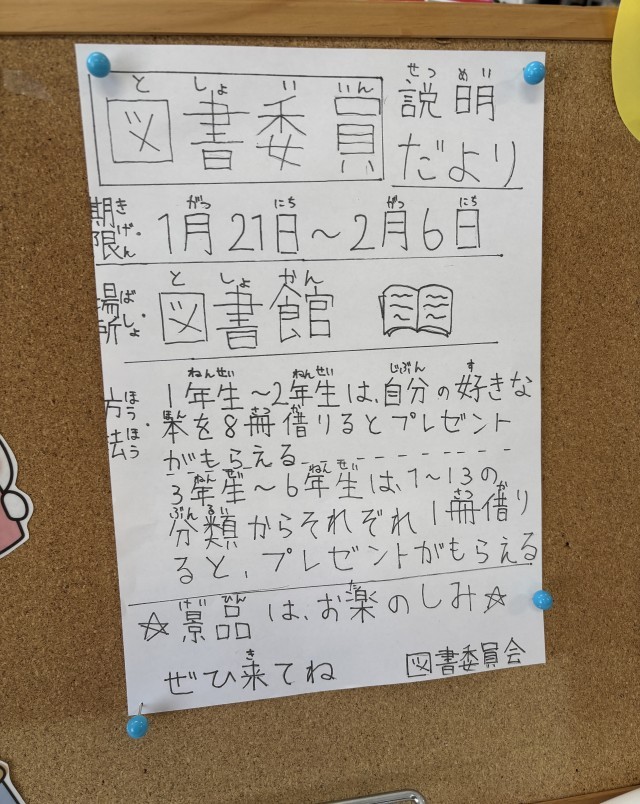 図書委員 説明
だより
期限 1月21日～2月6日
場所 図書館
方法 1年生～2年生は、自分の好きな
本を8冊借りるとプレゼント
がもらえる
3年生～6年生は、1～13の
分類からそれぞれ1冊借り
ると、プレゼントがもらえる
☆景品は、お楽のしみ☆
ぜひ来てね 図書委員会